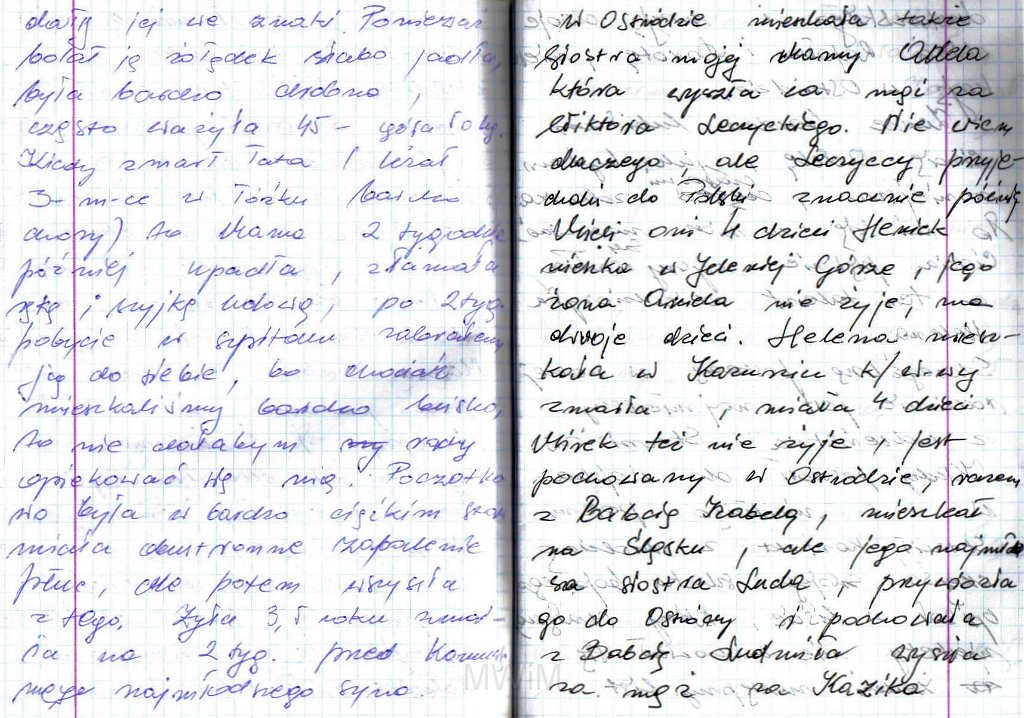 dały jej we znaki. Ponieważ
bolał ją żołądek słabo jadła,
była bardzo drobna,
często ważyła 45 - góra 50 kg.
Kiedy zmarł Tata / leżał
3- m-ce w łóżku bardzo
chory) to Mama 2 tygodnie
później upadła, złamała
rękę i szyjkę udową, po 2 tyg.
pobycie w szpitalu zabrałam
ją do siebie, bo chociaż
mieszkaliśmy bardzo blisko,
to nie dałabym rady
opiekować się nią. Początko
wo była w bardzo ciężkim stan
miała obustronne zapalenie
płuc, ale potem wyszła
z tego. Żyła 3,5 roku zmar-
ła na 2 tyg. przed
mego najmłodszego syna
W Ostródzie mieszkała także
siostra mojej Mamy Aniela
która wyszła za mąż za
Wiktora Łeczyckiego. Nie wiem
dlaczego, ale Łeczyccy przyje-
chali do Polski znacznie później
Mieli oni 4 dzieci Heniek
mieszka w Jeleniej Górze, jego
żona nie żyje, ma
dwoje dzieci. Helena miesz-
kała w k/w-wy
zmarła, miała 4 dzieci
Mirek też nie żyje, jest
pochowany w Ostródzie, razem
z Babcią Izabelą, mieszkał
na Śląsku, ale jego najmłod
sza siostra Luda, przywiozła
go do Ostródy i pochowała
z Babcią Ludmiła wyszła
za mąż za Kazika
MWiM